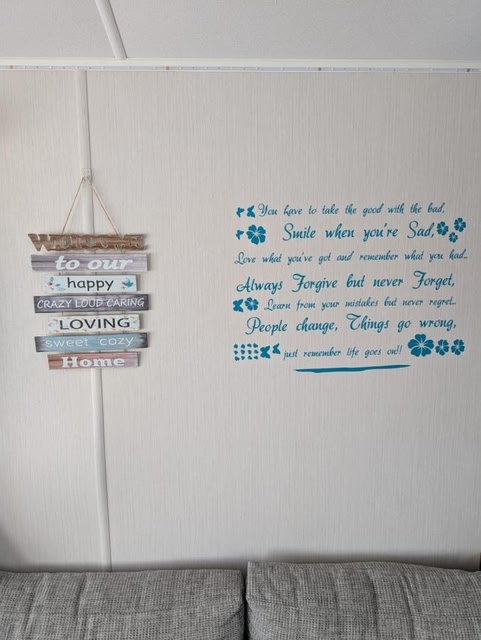 Welcome
to our
happy
CRAZY LOUD CARING
LOVING
sweet cozy
Home
You have to take the good with the bad,
Smile when you're Sad,
Love what you've got and remember what you had..
Always Forgive but never Forget,
Learn from your mistakes but never regret..
People change, Things go wrong,
just remember life goes on!!